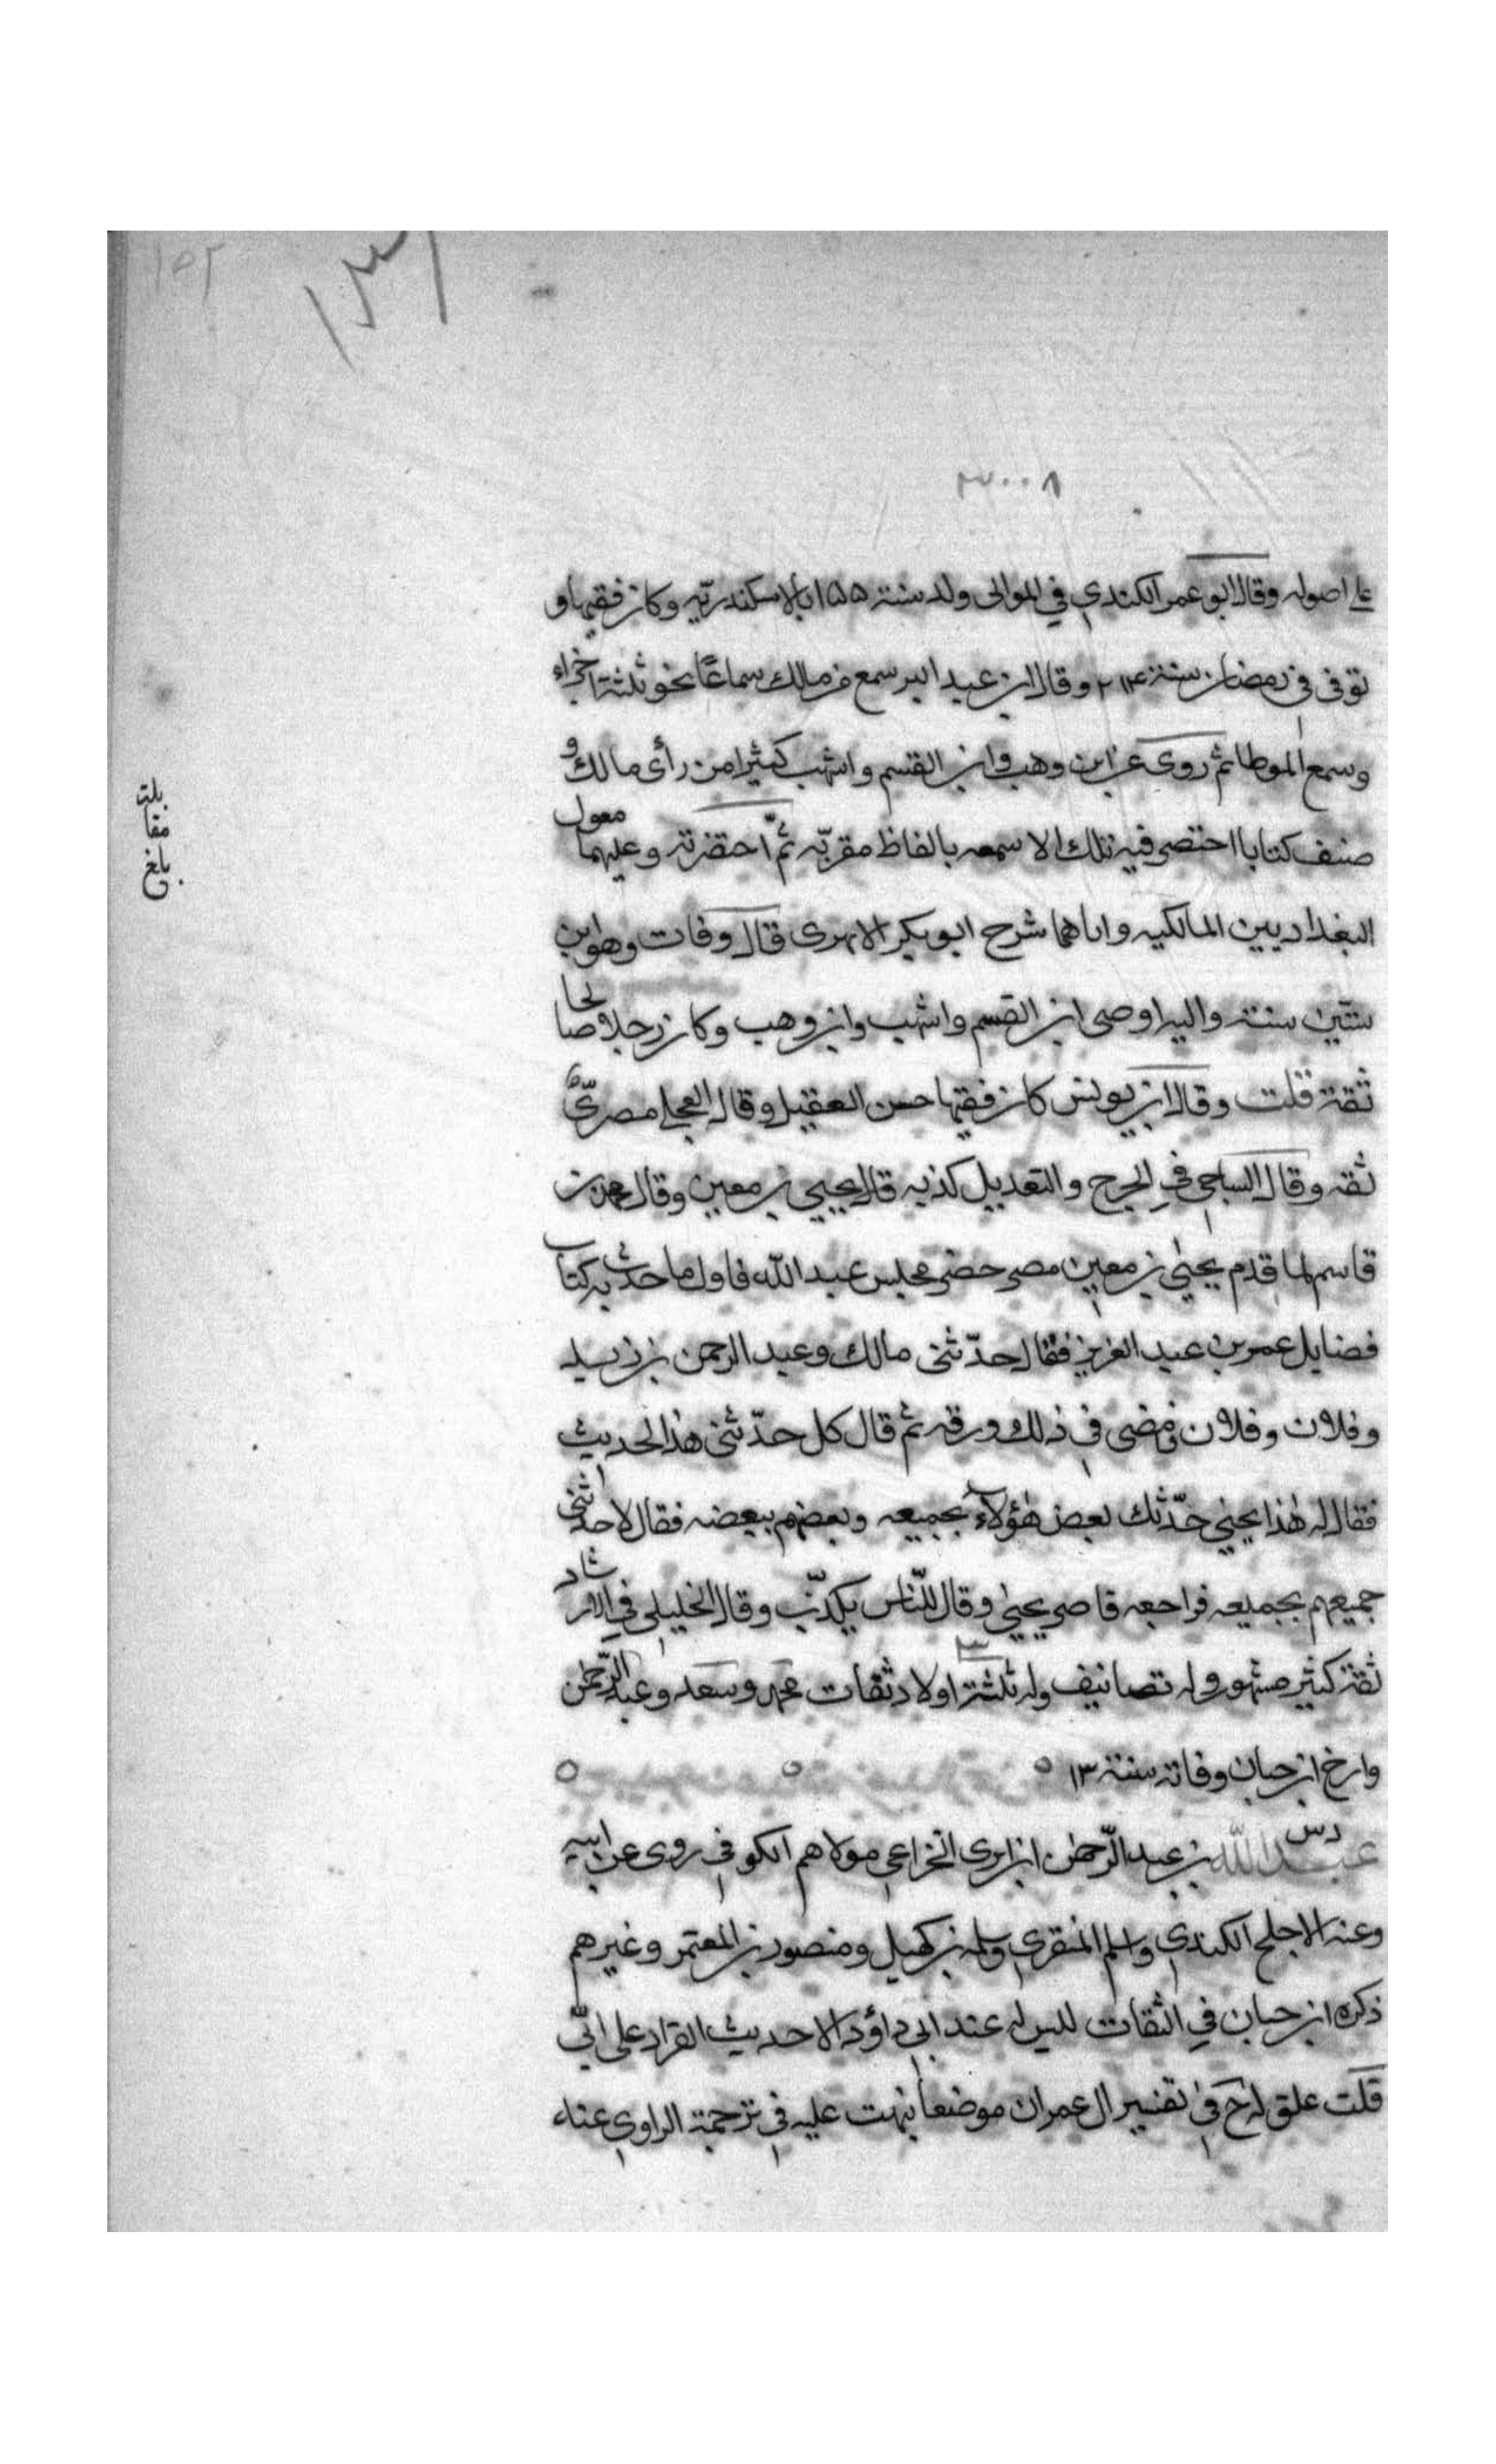 ١٥٢
١٣١
٣٠٠٨
على اصوله وقال ابو عمر الكندي في الموالى ولد سنة ١٥٥ بالاسكندرية وكان فقيها و
توفى في رمضان سنة ٢١٤ وقال ابن عبد البر سمع من مالك سماعًا نحو ثلثة اجزاء
وسمع الموطا ثم روى عن ابن وهب وابن القسم واشهب كثيرا من رأى مالك و
صنف كتابا اختصر فيه تلك الا سمعه بالفاظ مقربّه ثمّ اختصرته وعليهما معول
البغداديين المالكيه واياهما شرح ابو بكر الابهرى قال وفات وهو ابن
ستين سنة واليه اوصى ابن القسم واشهب وابن وهب وكان رجلا صالحا
ثقة قلت وقال ابن يونس كان فقيها حسن العقل وقال العجلى مصرىّ
ثقه وقال الساجى في الجرح والتعديل كذبه قال يحيي بن معين وقال محمد بن
قاسم لما قدم يحيى بن معين مصر حضر مجلس عبد الله فاول ما حدث به كتاب
فضايل عمر بن عبد العزيز فقال حدّثنى مالك وعبد الرحمن بن زيد
وفلان وفلان فمضى في ذلك ورقه ثم قال كل حدّثنى هذا الحديث
فقال له هذا يحيي حدّثك بعض هؤلاء بجميعه وبعضهم ببعضه فقال لا حدثنى
جميعهم بجميعه فراجعه فاصر يحيى وقال للنّاس يكذّب وقال الخليلى في الارشاد
ثقة كثير مشهور وله تصانيف وله ثلثة اولاد ثقات محمد وسعد وعبد الرّحمن
وارخ ابن حبان وفاته سنة ١٣
دس
عبد الله بن عبد الرّحمن ابن ابزى الخزاعي مولاهم الكوفي روى عن ابيه
وعنه الاجلح الكندي واسلم المنقري وسلمه بن كهيل ومنصور بن المعتمر وغيرهم
ذكره ابن حبان في الثقات ليس له عند ابي داؤد الا حديث القراد على ابيّ
قلت علق له خ في تفسير ال عمران موضعا نبهت عليه في ترجمة الراوي عنه
بلغ
مقا
بلت